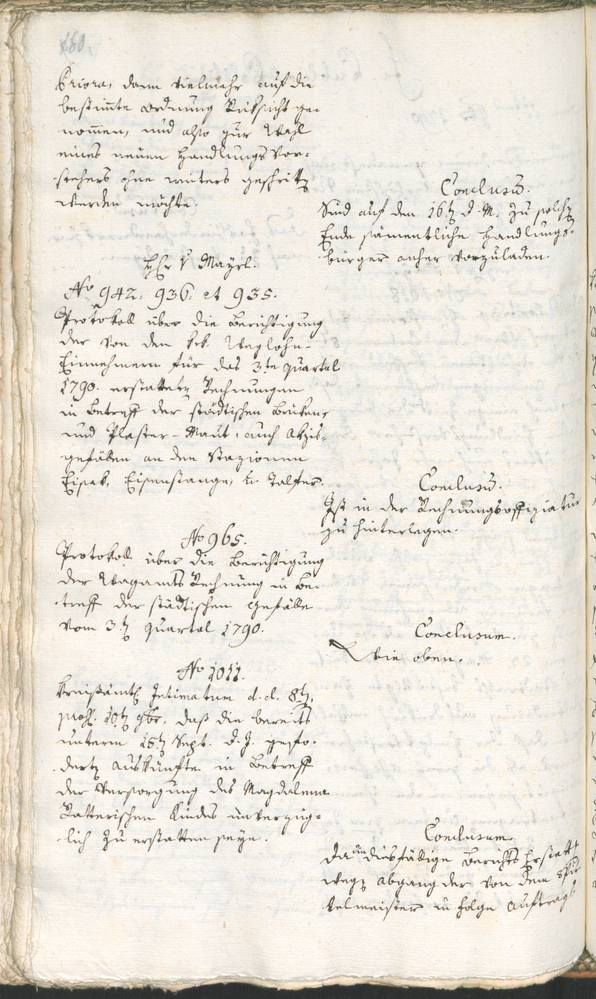 160.
Priora, dann vielmehr auf die
bestimte Ordnung Rüksicht ge-
nommen, und also zur Wahl
eines neuen Handlungs Vor-
stehers ohne weiters geschritten
werden möchte.
Conclusum.
Sind auf den 16ten d. M. zu solchem
Ende sämentliche Handlungs-
bürger anher vorzuladen.
Hr v Mayrl.
No 942. 936. et 935.
Protokoll über die Berichtigung
der von den kk. Weglohn-
Einnehmern für das 3te Quartal
1790. erstatteten Rechnungen
in Betreff der städtischen Brüken-
und Plaster-Maut, auch Akzis-
gefällen an den Stazionen
Eisak, Eisenstange, u. Talfer.
Conclusum.
Ist in der Rechnungsoffiziatur
zu hinterlegen.
No 965.
Protokoll über die Berichtigung
der Wagamts Rechnung in Be-
treff der städtischen Gefälle
vom 3ten Quartal 1790.
Conclusum.
Wie oben.
No 1011.
Kreisamts Intimatum d. d. 8ten,
10ten 9ber. daß die bereits
unterm 15ten Sept. d. J. gefo-
derten Auskünfte in Betreff
der Versorgung des Magdalena
Katterischen Kindes unverzüg-
lich zu erstatten seye.
Conclusum.
Da die diesfällige Berichts Erstatt
wegen Abgang der von dem Spit
telmeister in Folge Auftrags